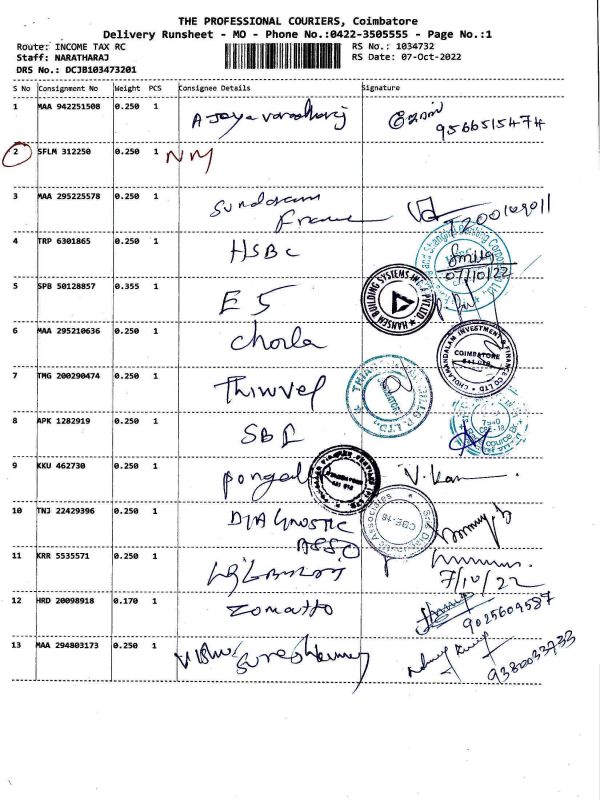 THE PROFESSIONAL COURIERS, Coimbatore
Delivery Runsheet - MO - Phone No.:0422-3505555 - Page No.:1
Route: INCOME TAX RC RS No.: 1034732
Staff: NARATHARAJ RS Date: 07-Oct-2022
DRS No.: DCJB103473201
S No Consignment No Weight PCS Consignee Details Signature
1 MAA 942251508 0.250 1 A Jaya varadharaj 9566515474
2 SFLM 312250 0.250 1 NM
3 MAA 295225578 0.250 1 Sundaram
4 TRP 6301865 0.250 1 HSBC 07/10/22
5 SPB 50128857 0.355 1 E5
HANSEN BUILDING SYSTEMS
6 MAA 295210636 0.250 1 Chola
CHOLAMANDALAM INVESTMENT & FINANCE CO LTD
COIMBATORE
7 TMG 200290474 0.250 1 Thirvel
8 APK 1282919 0.250 1 SBI
9 KKU 462730 0.250 1 pongal V. Kan
10 TNJ 22429396 0.250 1 DIAGNOSTIC
ASSO
CBE-18
11 KRR 5535571 0.250 1 7/10/22
12 HRD 20098918 0.170 1 Zomatto 9025609587
13 MAA 294803173 0.250 1 Vishnu 9380033733
Sureshkumar